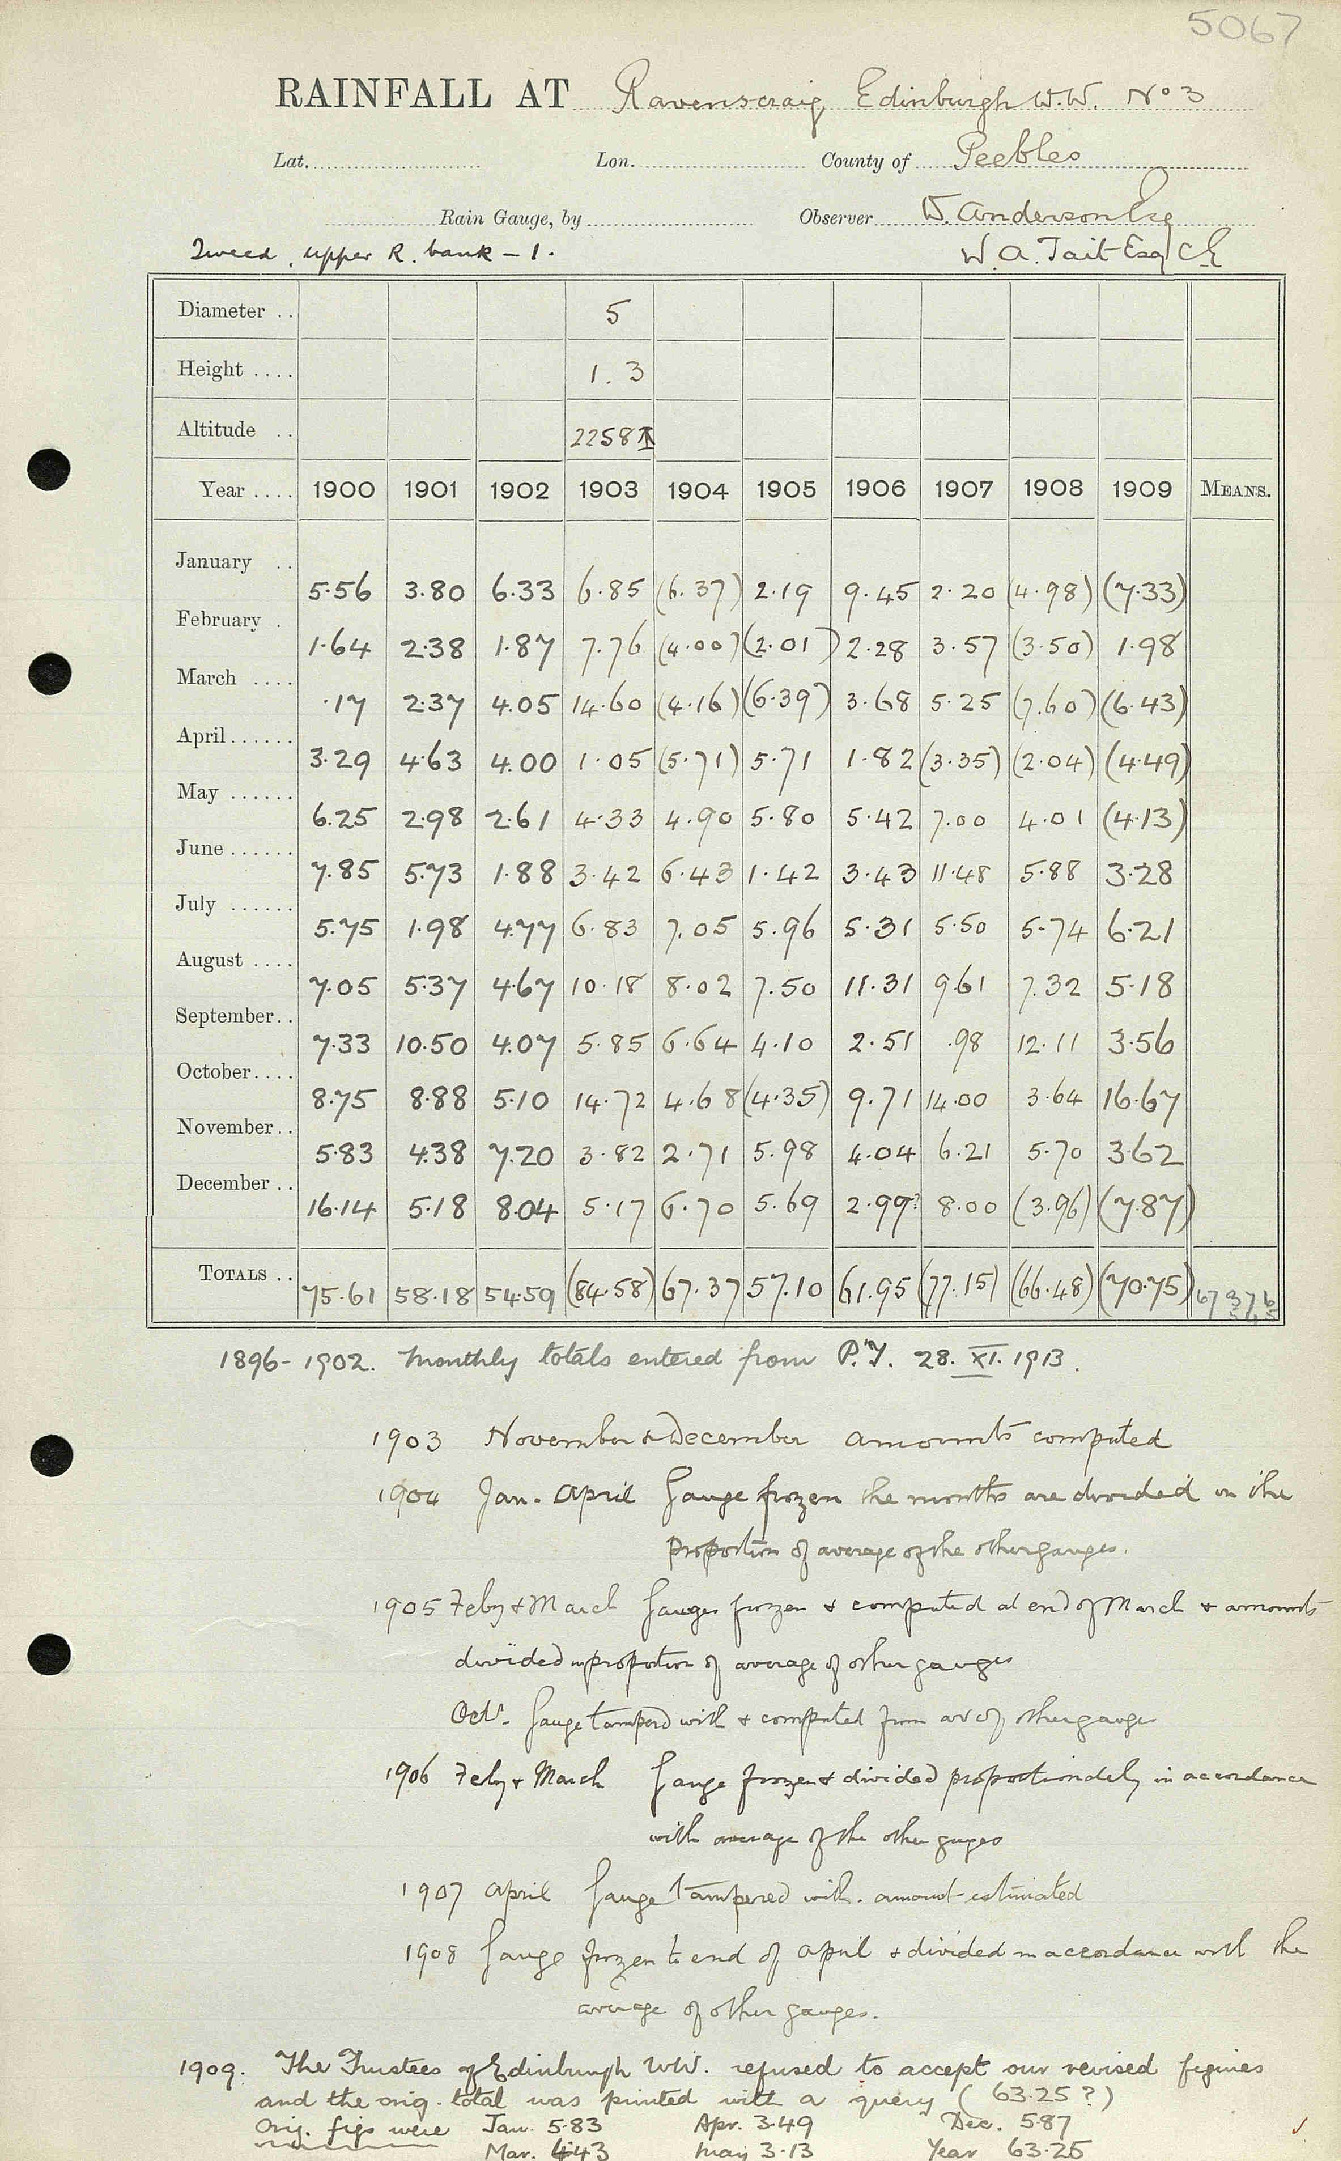 5067
RAINFALL AT Ravenscraig Edinburgh W.W. No 3
Lat. Lon. County of Peebles
Rain Gauge, by Observer W. Anderson Esq
Tweed, upper R. bank – 1. W. A. Tait Esq CE
Diameter .. 5
Height .... 1. 3
Altitude .. 2258
Year .... 1900 1901 1902 1903 1904 1905 1906 1907 1908 1909 MEANS.
January .. 5.56 3.80 6.33 6.85 (6.37) 2.19 9.45 2.20 (4.98) (7.33)
February . 1.64 2.38 1.87 7.76 (4.00) (2.01) 2.28 3.57 (3.50) 1.98
March .... .17 2.37 4.05 14.60 (4.16) (6.39) 3.68 5.25 (7.60) (6.43)
April...... 3.29 4.63 4.00 1.05 (5.71) 5.71 1.82 (3.35) (2.04) (4.49)
May ...... 6.25 2.98 2.61 4.33 4.90 5.80 5.42 7.00 4.01 (4.13)
June ...... 7.85 5.73 1.88 3.42 6.43 1.42 3.43 11.48 5.88 3.28
July ...... 5.75 1.98 4.77 6.83 7.05 5.96 5.31 5.50 5.74 6.21
August .... 7.05 5.37 4.67 10.18 8.02 7.50 11.31 9.61 7.32 5.18
September.. 7.33 10.50 4.07 5.85 6.64 4.10 2.51 .98 12.11 3.56
October.... 8.75 8.88 5.10 14.72 4.68 (4.35) 9.71 14.00 3.64 16.67
November.. 5.83 4.38 7.20 3.82 2.71 5.98 4.04 6.21 5.70 3.62
December .. 16.14 5.18 8.04 5.17 6.70 5.69 2.99? 8.00 (3.96) (7.87)
TOTALS .. 75.61 58.18 54.59 (84.58) 67.37 57.10 61.95 (77.15) (66.48) (70.75)
1896-1902. Monthly totals entered from P.Y. 28. XI. 1913.
1903 November & December amounts computed
1904 Jan. - April Gauge frozen the months are divided in the
proportion of average of the other gauges.
1905 Feby & March Gauges frozen & computed at end of March & amounts
divided in proportion of average of other gauges
Oct. Gauge tampered with & computed from av of other gauges
1906 Feby & March Gauge frozen & divided proportionately in accordance
with average of the other gauges
1907 April Gauge tampered with. amount estimated
1908 Gauge frozen to end of April & divided in accordance with the
average of other gauges.
1909. The Trustees of Edinburgh W.W. refused to accept our revised figures
and the orig. total was printed with a query (63.25?)
Orig. figs were Jan. 5.83 Apr. 3.49 Dec. 5.87
Mar. 4.43 May 3.13 Year 63.25